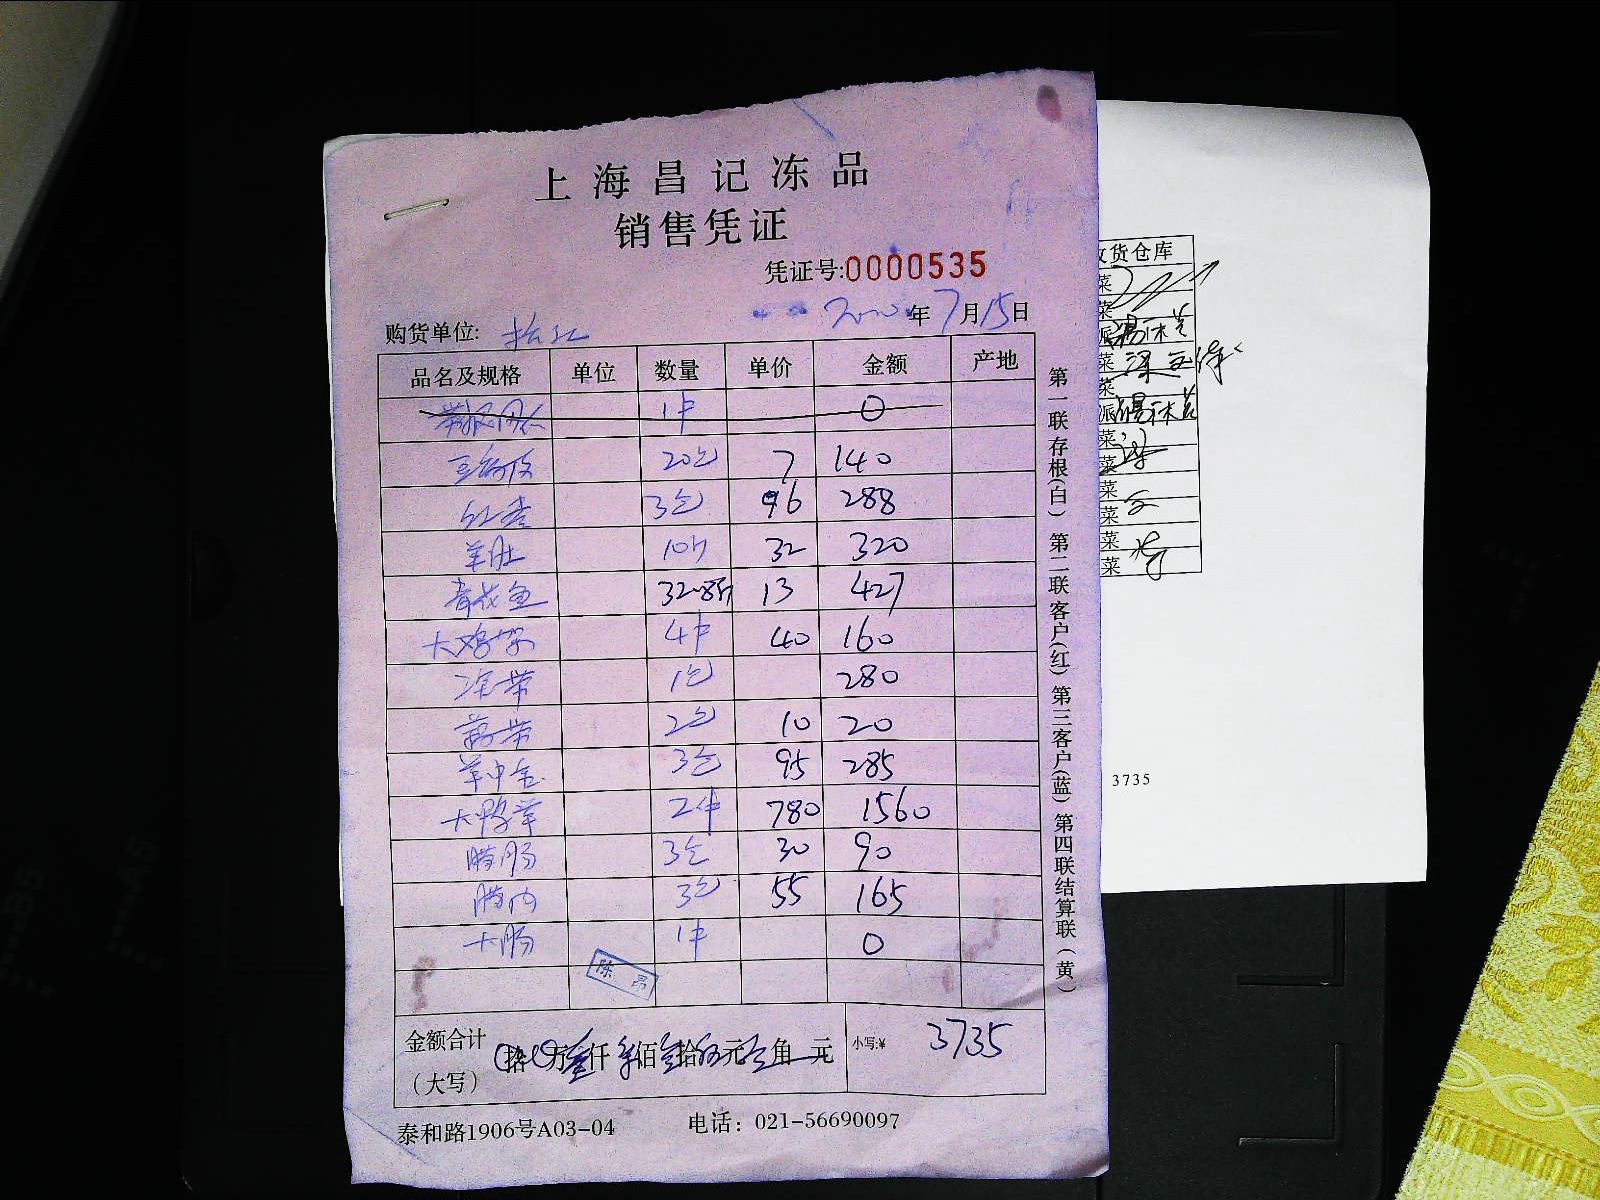 上海昌记冻品
销售凭证
凭证号:0000535
年7月15日
购货单位:
品名及规格 单位 数量 单价 金额 产地
1件 0
豆腐皮 20包 7 140
红枣 3包 96 288
羊肚 10斤 32 320
青花鱼 32.8斤 13 427
大鸡架 4件 40 160
1包 280
2包 10 20
3包 95 285
2件 780 1560
腊肠 3包 30 90
腊肉 3包 55 165
大肠 1件 0
陈昂
金额合计
(大写)
拾 万叁仟 佰 拾伍元 角 元
小写:¥ 3735
泰和路1906号A03-04 电话：021-56690097
第一联存根(白) 第二联客户(红) 第三客户(蓝) 第四联结算联(黄)
货仓库
菜
菜
派
菜
菜
派
菜
菜
菜
菜
菜
菜
3735